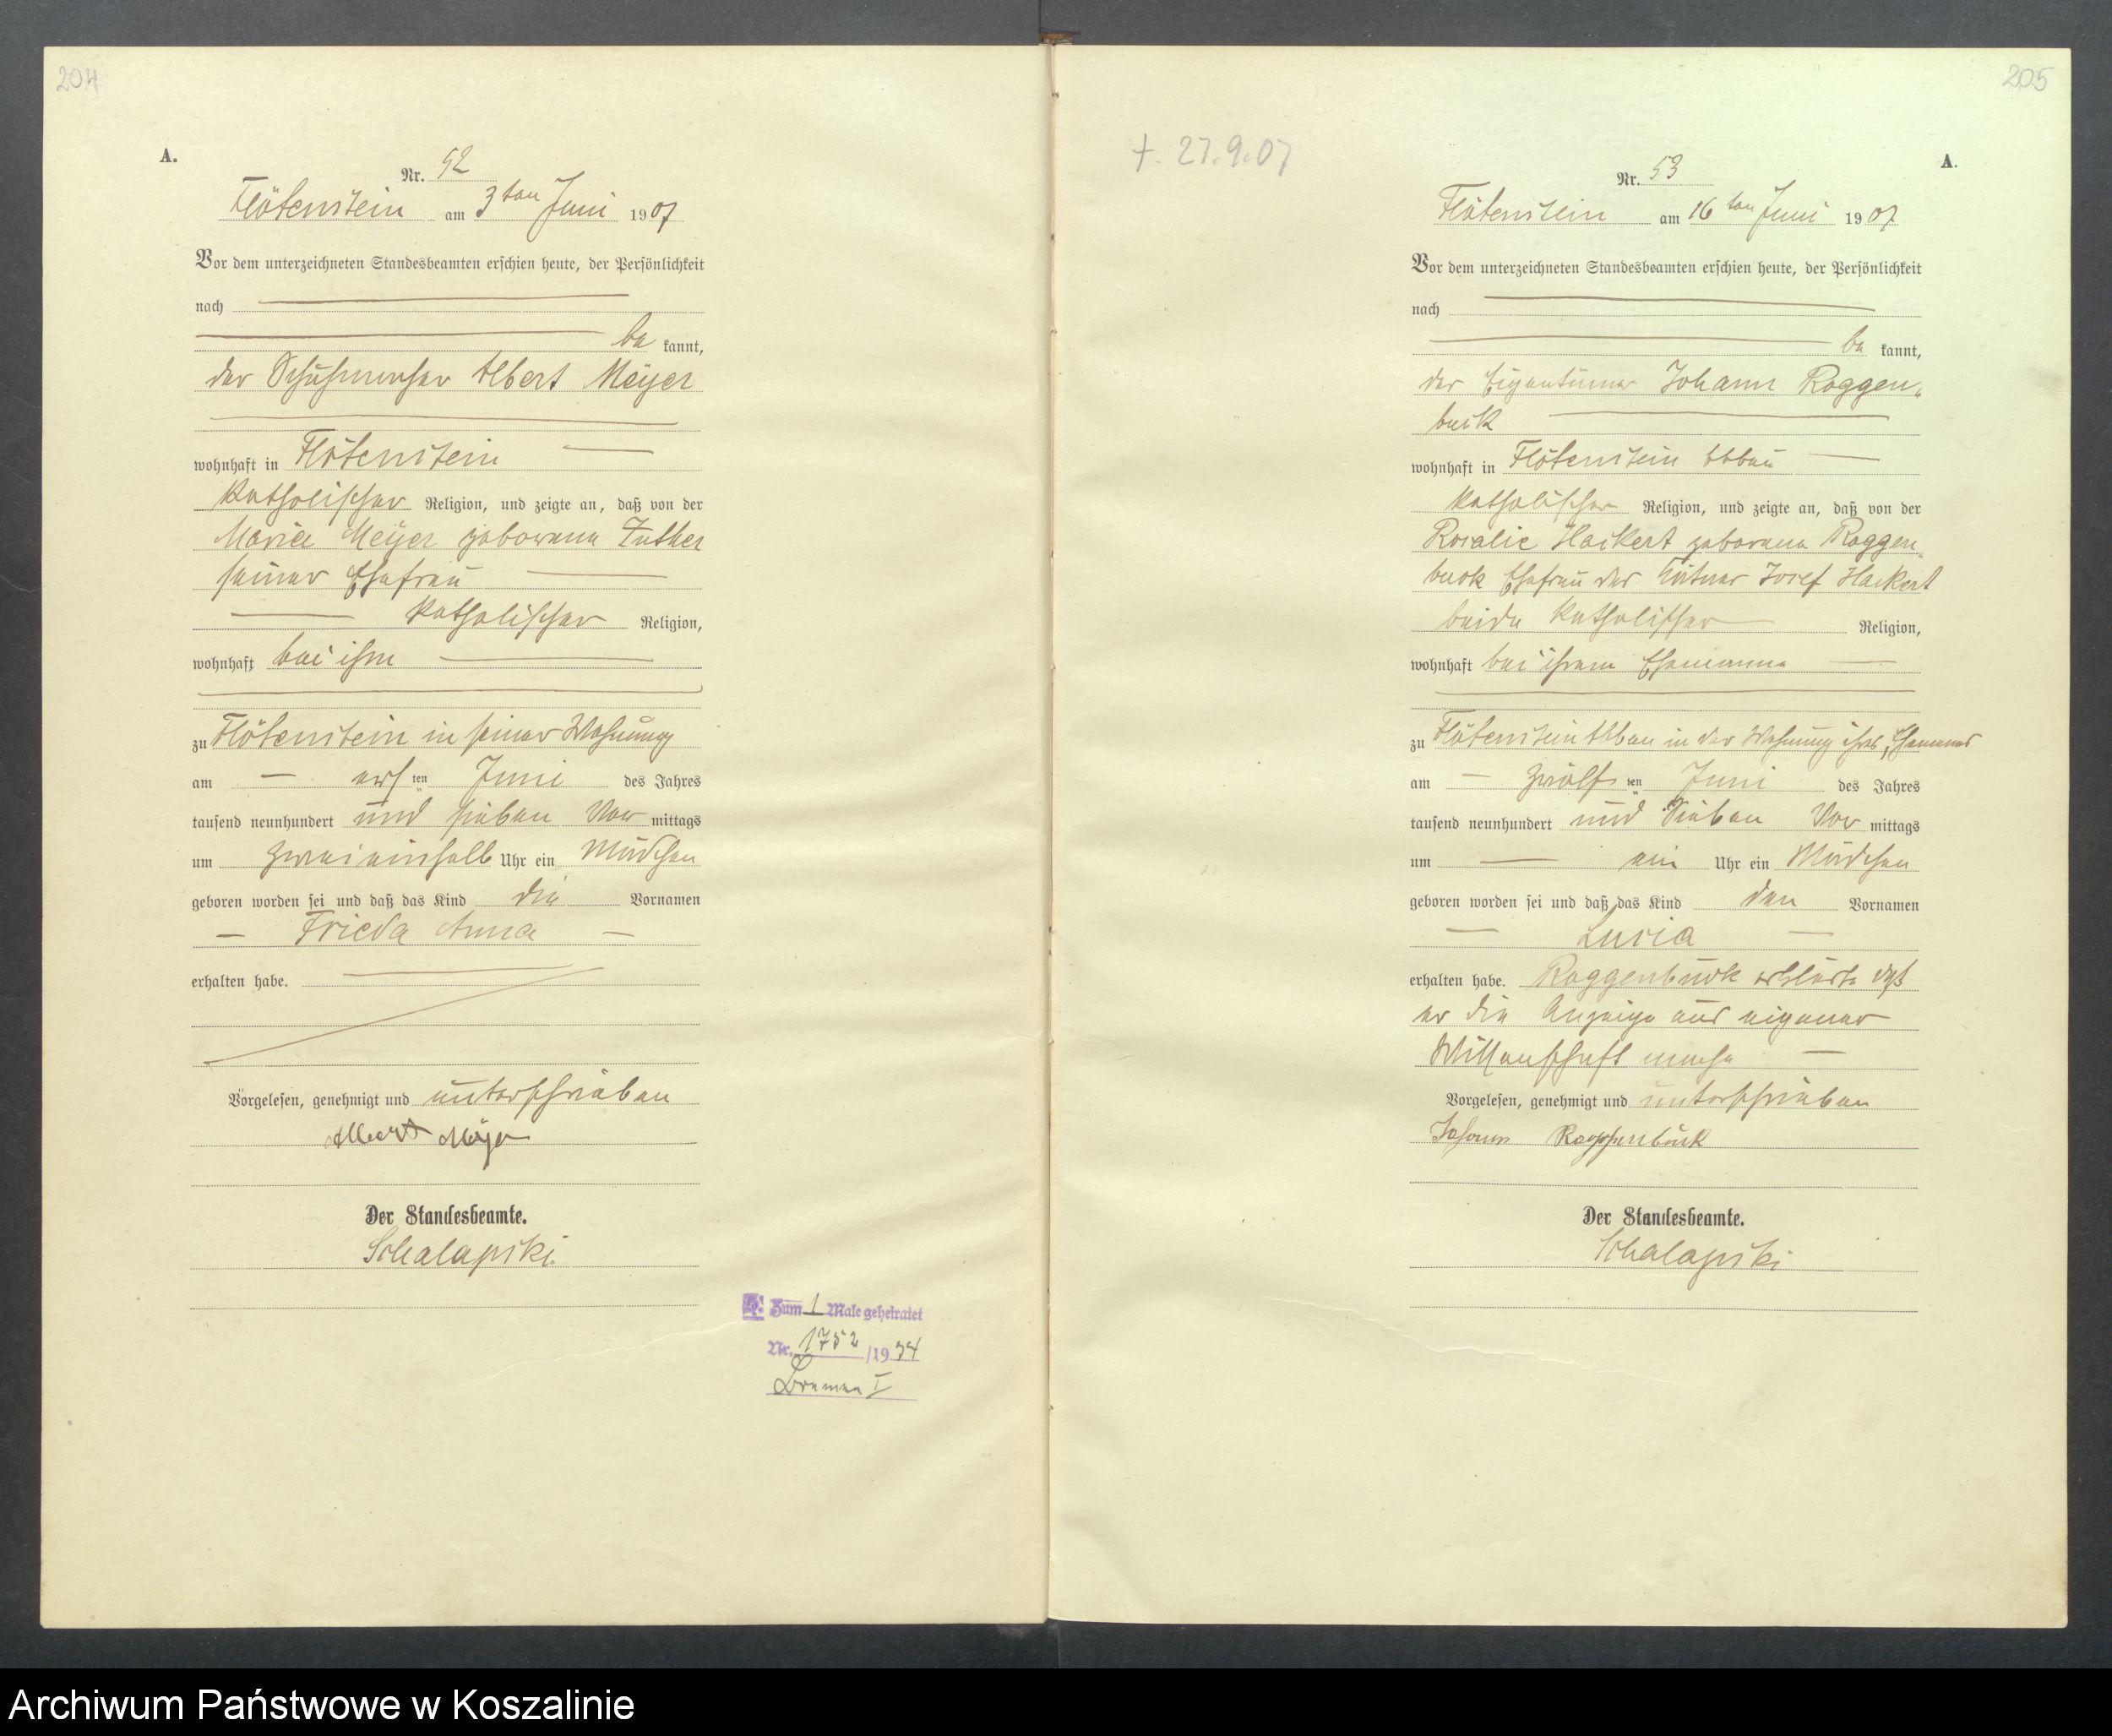 204
A.
Nr. 52
Flötenstein am 3ten Juni 1907
Vor dem unterzeichneten Standesbeamten erschien heute, der Persönlichkeit
nach
be kannt,
der Schuhmacher Albert Meyer
wohnhaft in Flötenstein
katholischer Religion, und zeigte an, daß von der
Maria Meyer geborene
seiner Ehefrau
katholischer Religion,
wohnhaft bei ihm
zu Flötenstein in seiner Wohnung
am ersten Juni des Jahres
tausend neunhundert und sieben Vor mittags
um zweieinhalb Uhr ein Mädchen
geboren worden sei und daß das Kind die Vornamen
Frieda Anna
erhalten habe.
Vorgelesen, genehmigt und unterschrieben
Albert Meyer
Der Standesbeamte.
Schalapski
Zum 1 Male geheiratet
Nr. 1752/1934
Bremen I
205
A.
+. 27.9.07
Nr. 53
Flötenstein am 16ten Juni 1907
Vor dem unterzeichneten Standesbeamten erschien heute, der Persönlichkeit
nach
be kannt,
der Eigentümer Johann Roggen-
buck
wohnhaft in Flötenstein Abbau
katholischer Religion, und zeigte an, daß von der
Rosalie Hackert geborene Roggen-
buck Ehefrau des Josef Hackert
beide katholischer Religion,
wohnhaft bei ihrem Ehemanne
zu Flötenstein Abbau in der Wohnung ihres Ehemannes
am zwölften Juni des Jahres
tausend neunhundert und Sieben Vor mittags
um ein Uhr ein Mädchen
geboren worden sei und daß das Kind den Vornamen
Lucia
erhalten habe. Roggenbuck erklärte daß
er die Anzeige aus eigener
Wissenschaft mache
Vorgelesen, genehmigt und unterschrieben
Johann Roggenbuck
Der Standesbeamte.
Schalapski
Archiwum Państwowe w Koszalinie